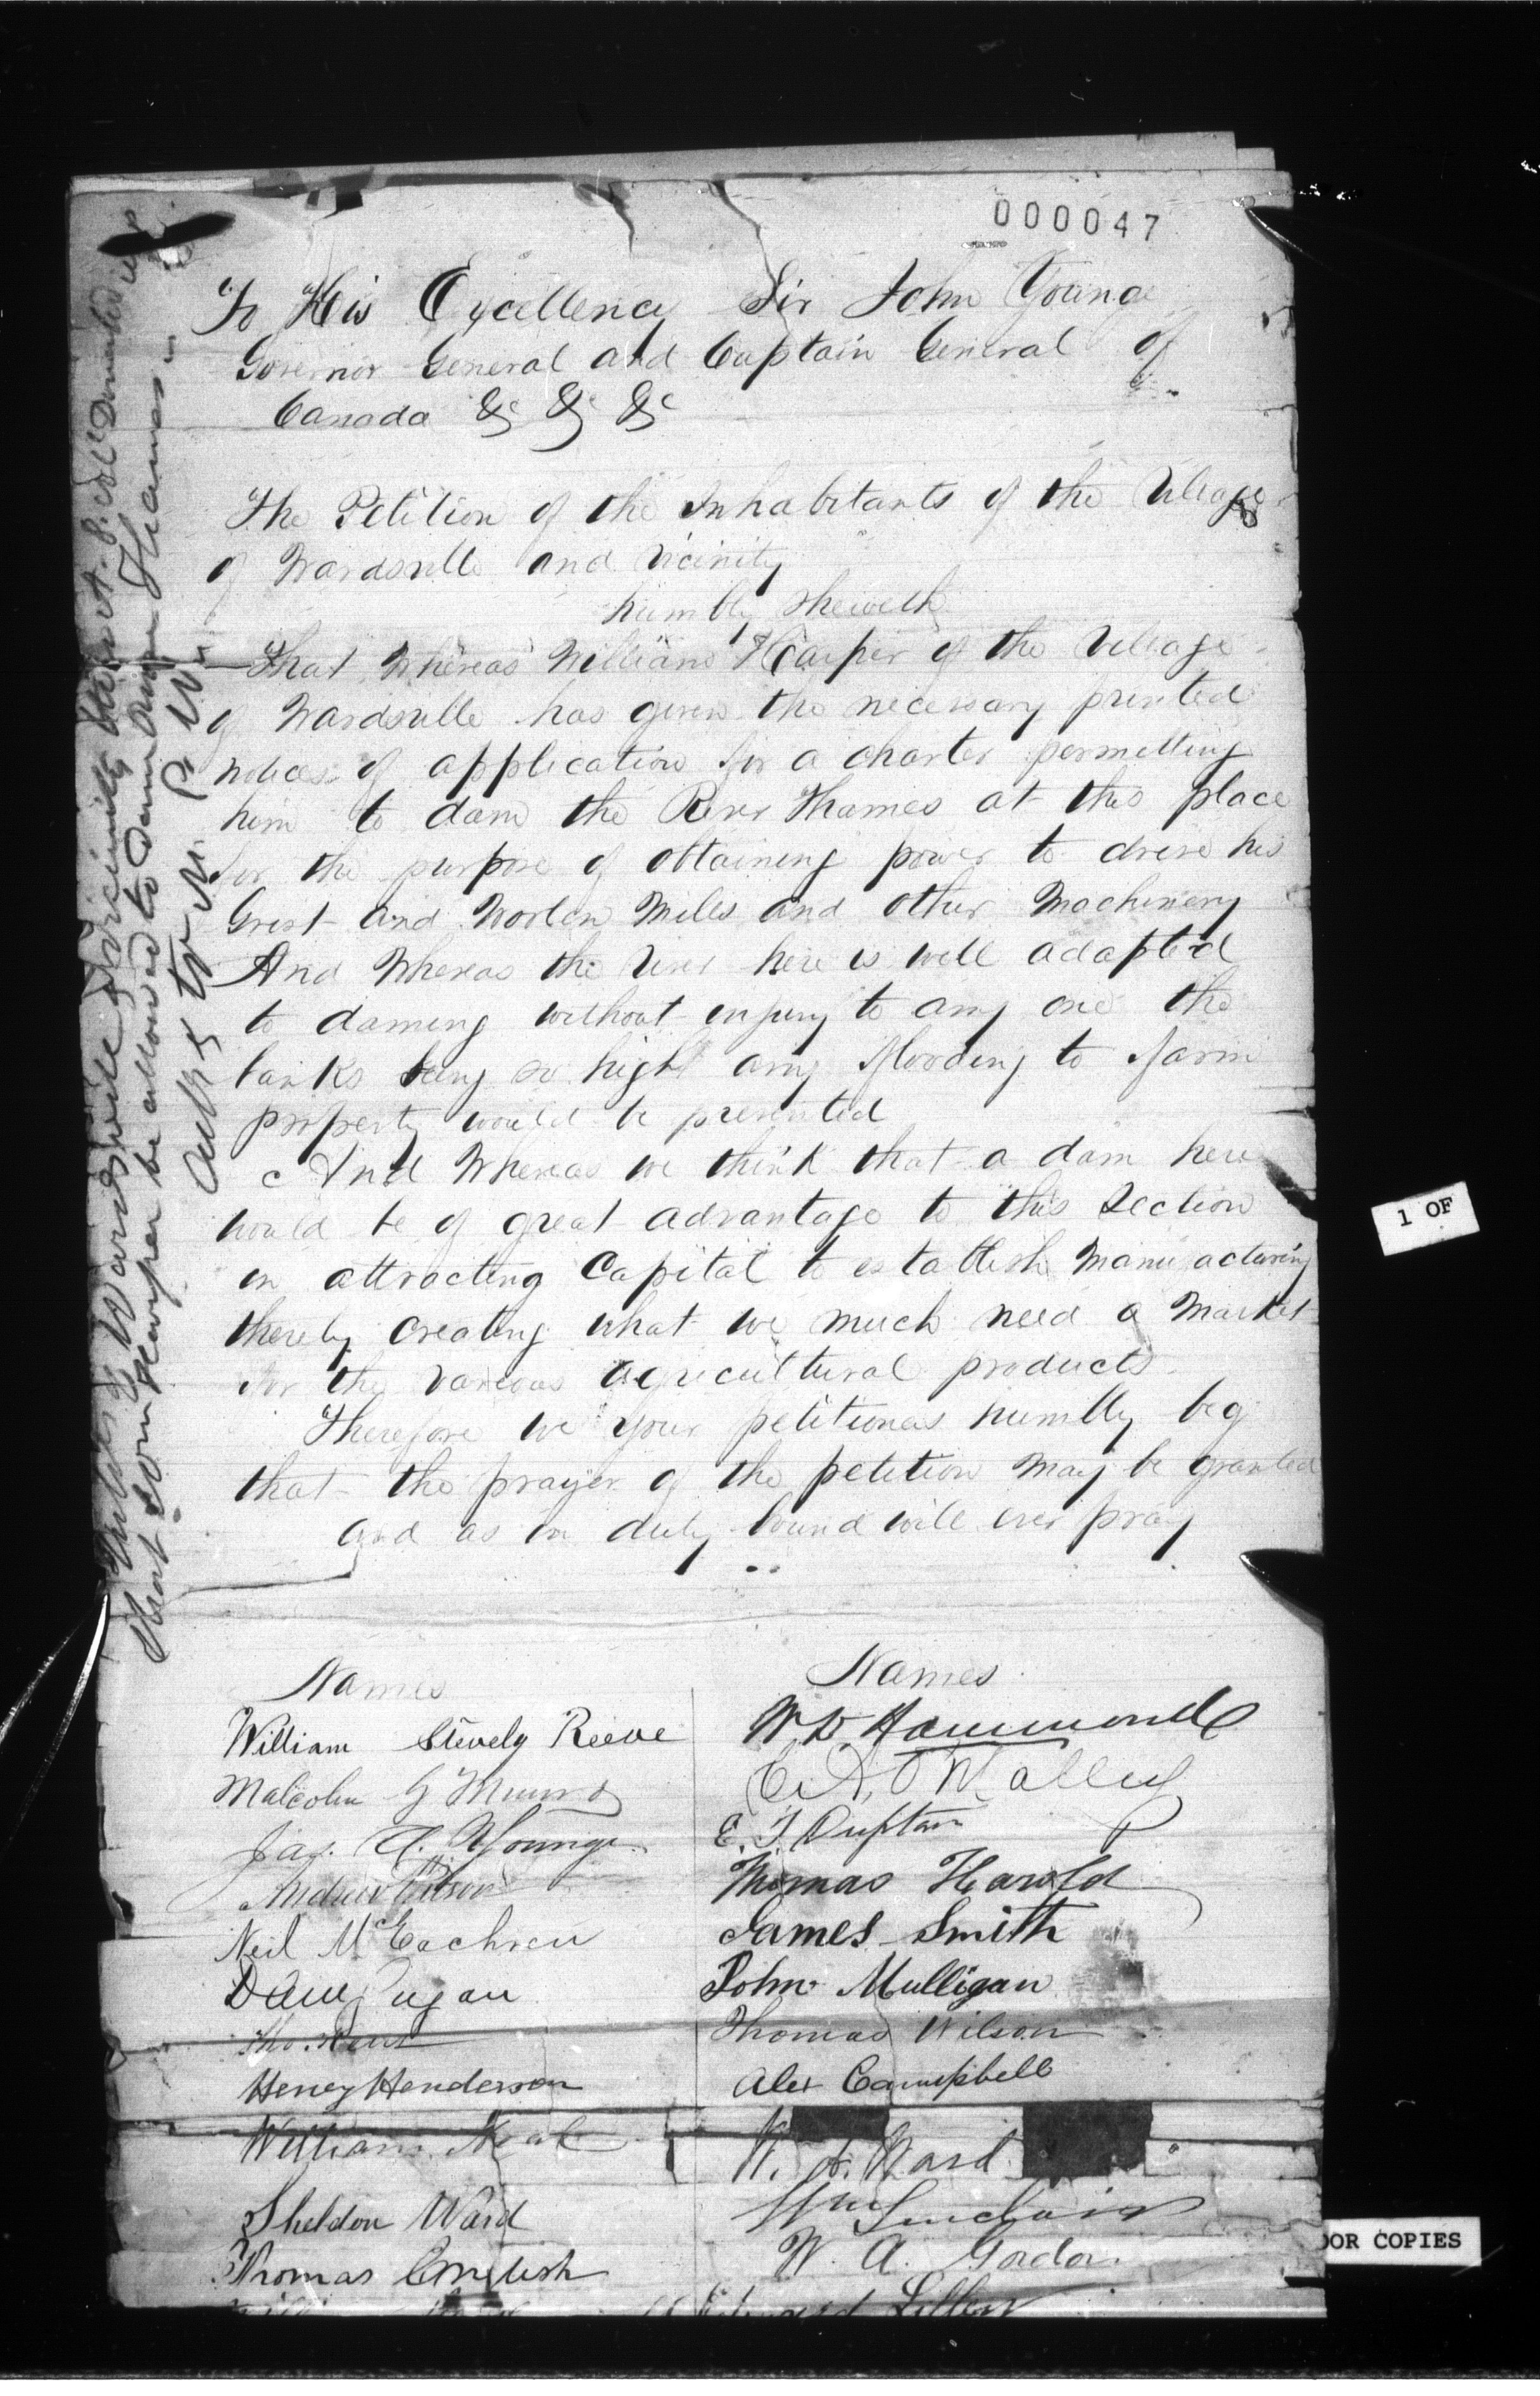 000047
To His Excellency Sir John Young
Governor General and Captain General of
Canada &c &c &c
The Petition of the Inhabitants of the Village
of Wardsville and Vicinity
humbly sheweth
That Whereas William Harper of the Village
of Wardsville has given the necessary printed
notices of application for a charter permitting
him to dam the River Thames at this place
for the purpose of obtaining power to drive his
Grist and Woolen Mills and other Machinery
And Whereas the River here is well adapted
to daming without injury to any one the
banks being so high any flooding to farm
property would be prevented
And Whereas we think that a dam here
would be of great advantage to this Section
in attracting Capital to establish Manufacturing
thereby creating what we much need a Market
for the various agricultural products
Therefore we your petitioners humbly beg
that the prayer of the petition may be granted
and as in duty bound will ever pray
Wardsville & Vicinity
that Wm Harper be allowed to Dam River Thames
Names
William Stively Reeve
Malcolm G Munro
Jas. A. Younge
Andrew Wilson
Neil McEachren
Dugan
Henery Henderson
William Neal
Sheldon Ward
Thomas English
Names
W D Hammond
E. A. O'Malley
E. T.
Thomas Harold
James Smith
John Mulligan
Thomas Wilson
Alex Campbell
W. A. Ward
Wm Sinclair
W. A. Gordon
Edward
1 OF
OOR COPIES